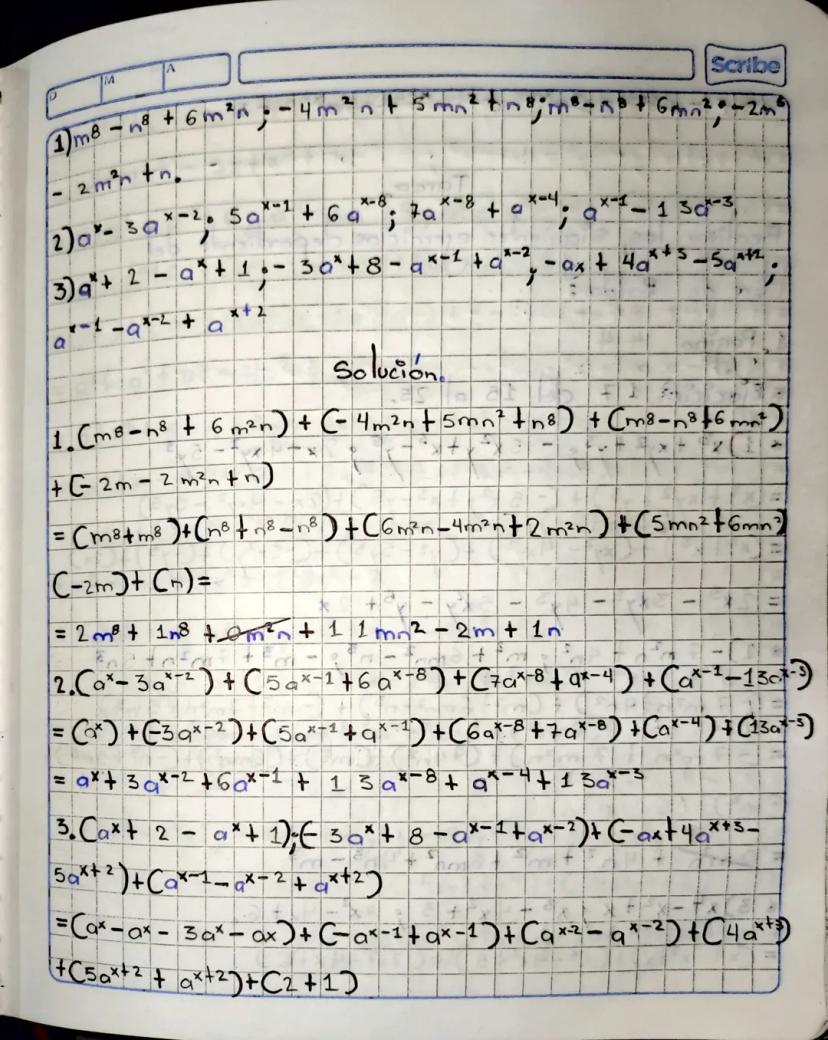 D M A
Scribe
1) m⁸ - n⁸ + 6m²n; - 4m²n + 5mn² + n⁸; m⁸ - n⁸ + 6mn²; - 2m⁶
- 2m²n + n.
2) aˣ - 3aˣ⁻²; 5aˣ⁻¹ + 6aˣ⁻⁸; 7aˣ⁻⁸ + aˣ⁻⁴; aˣ⁻¹ - 13aˣ⁻³
3) aˣ + 2 - aˣ + 1; - 3aˣ + 8 - aˣ⁻¹ + aˣ⁻²; - ax + 4aˣ⁺³ - 5aˣ⁺²;
aˣ⁻¹ - aˣ⁻² + aˣ⁺²
Solución.
1. (m⁸ - n⁸ + 6m²n) + (- 4m²n + 5mn² + n⁸) + (m⁸ - n⁸ + 6mn²)
+ (- 2m - 2m²n + n)
= (m⁸ + m⁸) + (n⁸ + n⁸ - n⁸) + (6m²n - 4m²n + 2m²n) + (5mn² + 6mn²)
(-2m) + (n) =
= 2m⁸ + 1n⁸ + 0m²n + 11mn² - 2m + 1n
2. (aˣ - 3aˣ⁻²) + (5aˣ⁻¹ + 6aˣ⁻⁸) + (7aˣ⁻⁸ + aˣ⁻⁴) + (aˣ⁻¹ - 13aˣ⁻³)
= (aˣ) + (-3aˣ⁻²) + (5aˣ⁻¹ + aˣ⁻¹) + (6aˣ⁻⁸ + 7aˣ⁻⁸) + (aˣ⁻⁴) + (13aˣ⁻³)
= aˣ + 3aˣ⁻² + 6aˣ⁻¹ + 13aˣ⁻⁸ + aˣ⁻⁴ + 13aˣ⁻³
3. (aˣ + 2 - aˣ + 1); (- 3aˣ + 8 - aˣ⁻¹ + aˣ⁻²) + (- ax + 4aˣ⁺³ -
5aˣ⁺²) + (aˣ⁻¹ - aˣ⁻² + aˣ⁺²)
= (aˣ - aˣ - 3aˣ - ax) + (- aˣ⁻¹ + aˣ⁻¹) + (aˣ⁻² - aˣ⁻²) + (4aˣ⁺³)
+ (5aˣ⁺² + aˣ⁺²) + (2 + 1)